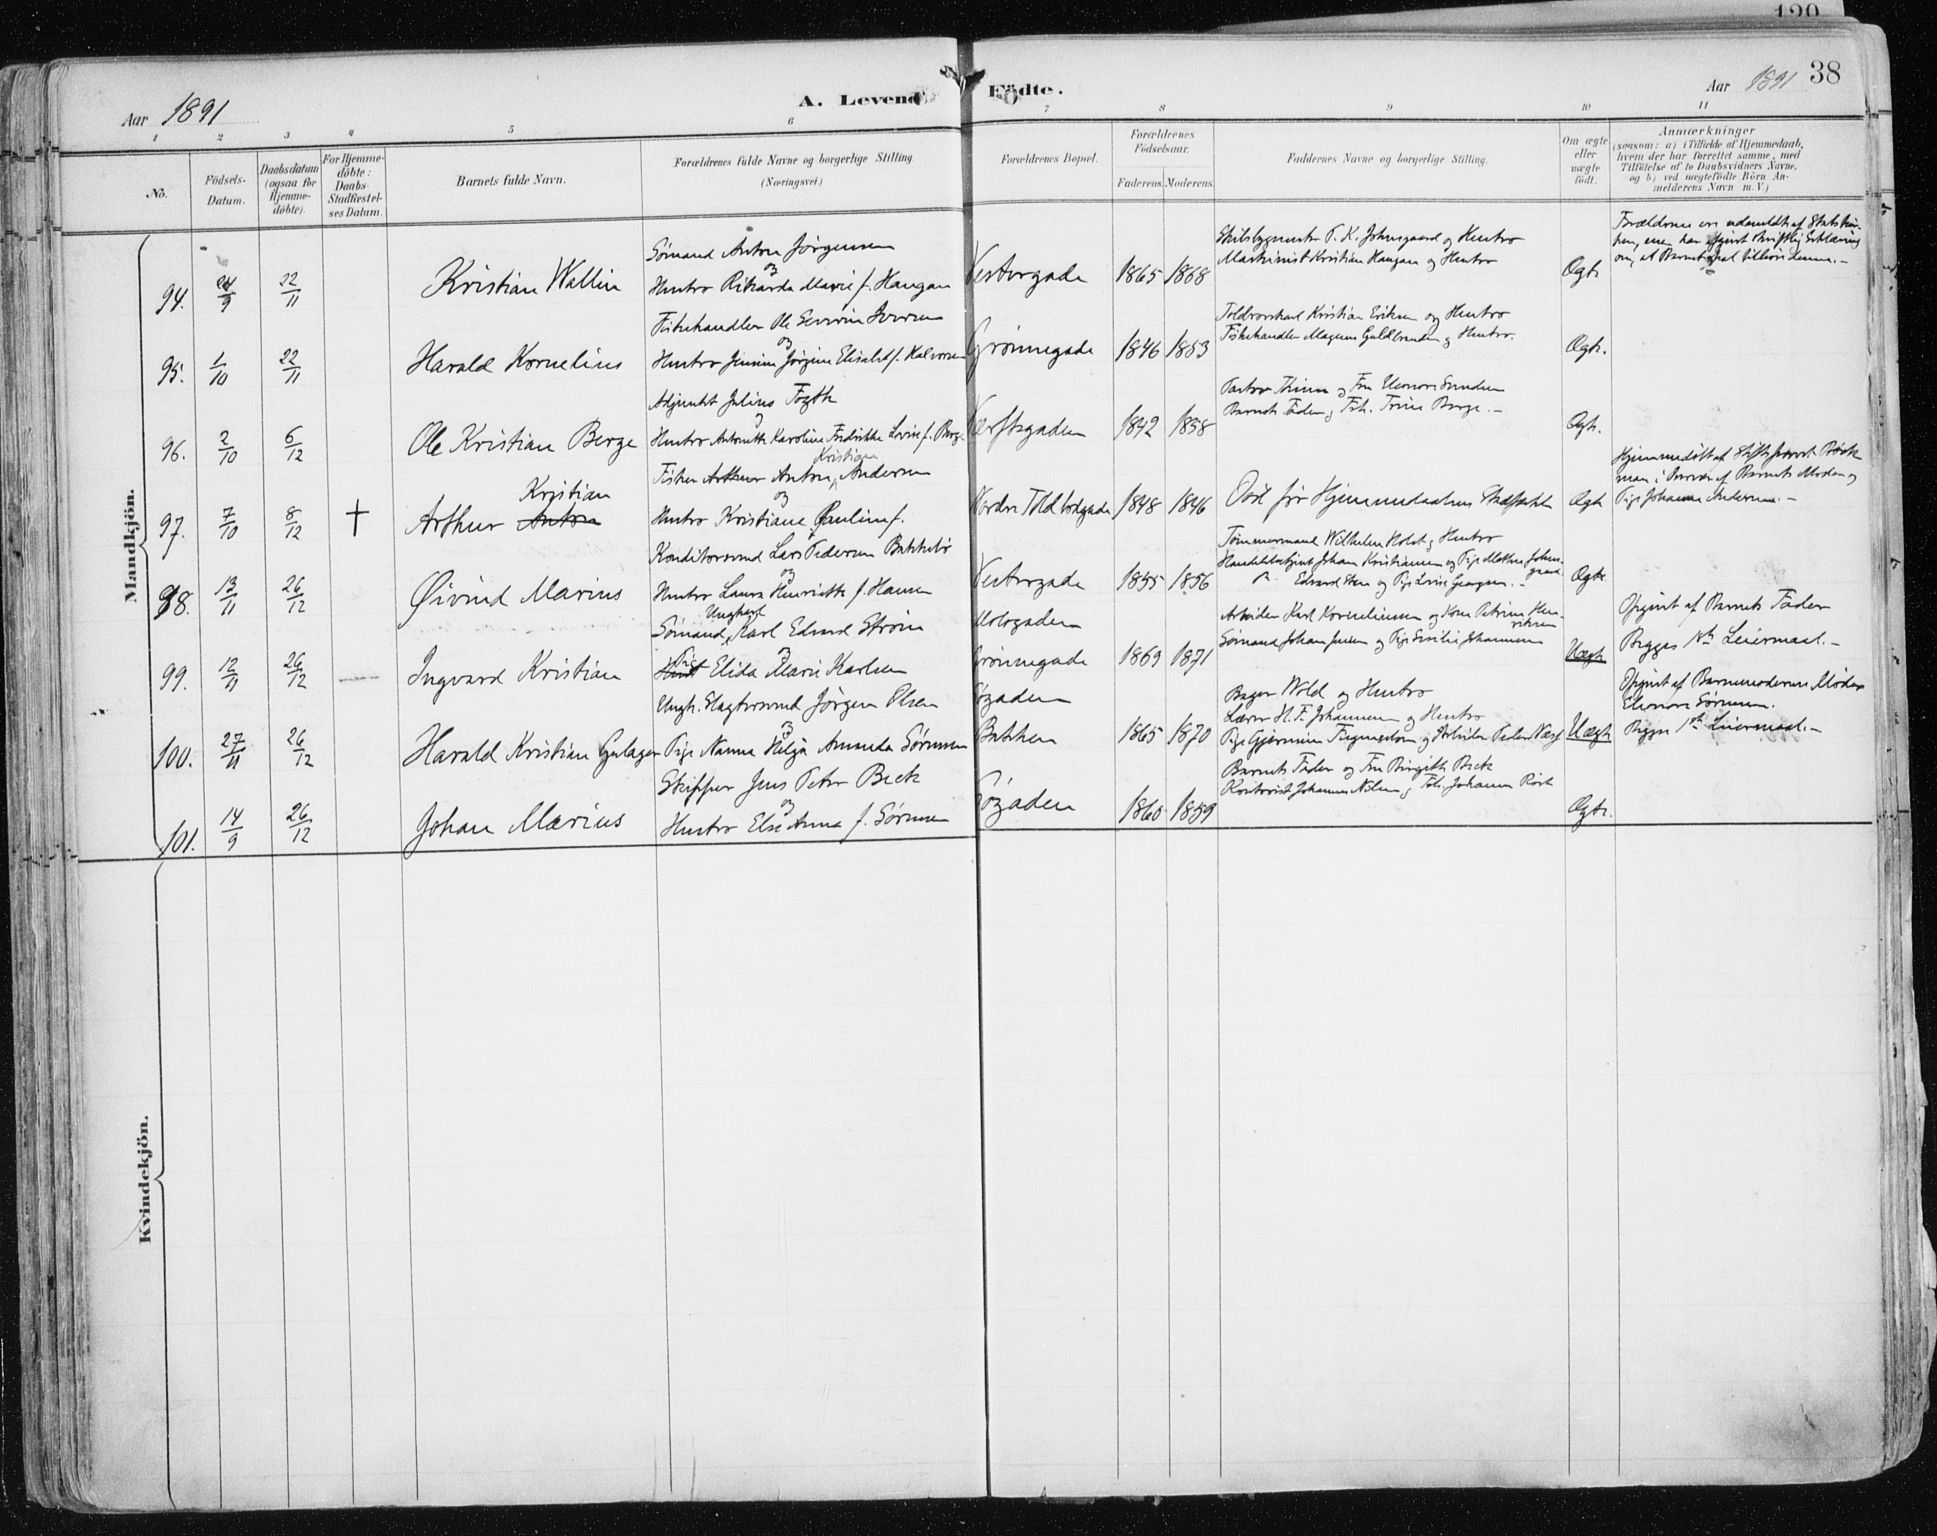 120
38
Aar 1891
A. Levende Födte.
Aar 1891
1 2 3 4 5 6 7 8 9 10 11
No.
Födsels-Datum.
Daabsdatum (ogsaa for Hjemme-döbte).
For Hjemme-döbte: Daabs-Stadfæstel-ses Datum.
Barnets fulde Navn.
Forældrenes fulde Navne og borgerlige Stilling. (Næringsvei.)
Forældrenes Bopæl.
Forældrenes Födselsaar.
Faderens. Moderens.
Faddernes Navne og borgerlige Stilling.
Om ægte eller uægte födt.
Anmærkninger
(saasom: a) i Tilfælde af Hjemmedaab,
hvem der har forrettet samme, med
Tilföielse af to Daabsvidners Navne,
og b) ved uægtefödte Börn An-
melderens Navn m. V.)
Mandkjön.
94. 24/9 22/11 Kristian Wallin
Sømand Anton Jørgensen
og
Hustro Rikarda Marie f. Haugan
Vestergade 1865 1868
Skibsbygmester P. K. Johnsgaard og Hustro
Maskinist Kristian Haugan og Hustro
Ægte
Forældrene ere udmeldt af Statskir-
ken, men har afgivet skriftlig Erklæring
om, at Barnet skal tilhøre denne.-
95. 1/10 22/11 Harald Kornelius
Fiskehandler Ole Severin Iversen
og
Hustro Jensine Jørgine Elisabeth f. Halvorsen
Grønnegade 1846 1853
Toldroerskarl Kristian Eriksen og Hustro
Fiskehandler Magnus Guldbrandsen og Hustro.
Ægte.
96. 2/10 6/12 Ole Kristian Berge
Adjunkt Julius Fogth
og
Hustro Antonette Karoline Fredrikke Lovise f. Berge
Værftsgaden 1842 1858
Pastor Thinn og Fru Eleonore Sundsen
Barnets Fader og Frk. Trine Berge.-
Ægte.
97. 7/10 8/12 † Arthur Anton Kristian
Fisker Arthur Anton Kristian Andersen
og
Hustro Kristiane Pauline f.
Nordre Toldbodgade 1848 1846
Død før Hjemmedaabens Stadfæstelse
Ægte
Hjemmedøbt af Stiftsprovst Böck
man i Nærvær af Barnets Moder og
Pige Johanna Andersen.-
98. 13/11 26/12 Øivind Marius
Konditorsvend Lars Pedersen Bakkebø
og
Hustro Laura Henriette f. Hansen
Vestergade 1855 1856
Tømmermand Wilhelm Holst og Hustro
Handelsbetjent Johan Kristiansen og Pige Mathea Johns-
gaard
Edvard Steen og Pige Lovise Georgsen.-
Ægte
99. 12/11 26/12 Ingvard Kristian
Sømand, Ungkarl Karl Edvard Strøm
og
Hust Pige Elida Marie Karlsen
Storgaden
Grønnegade 1869 1871
Arbeider Karl Korneliussen og Kone Petrine Hen-
riksen
Sømand Johan Jensen og Pige Emilie Johannesen
Uægte
Opgivet af Barnets Fader
Begges 1ste Leiermaal.-
100. 27/11 26/12 Harald Kristian Gulager
Ungk. Slagtersvend Jørgen Olsen
og
Pige Nanna Helga Amanda Sørensen
Søgaden
Bakken 1865 1870
Bager Wold og Hustro
Lærer H. F. Johannesen og Hustro
Uægte
Opgivet af Barnemoderens Moder
Eleonore Sørensen.
Begges 1ste Leiermaal.-
101. 14/9 26/12 Johan Marius
Skipper Jens Peter Beck
og
Hustro Else Anna f. Sørensen
Søgaden 1860 1859
Barnets Fader og Fru Birgitte Beck
Kontorist Johannes Nilsen og Frk. Johanna Rørh
Ægte.
Kvindekjön.